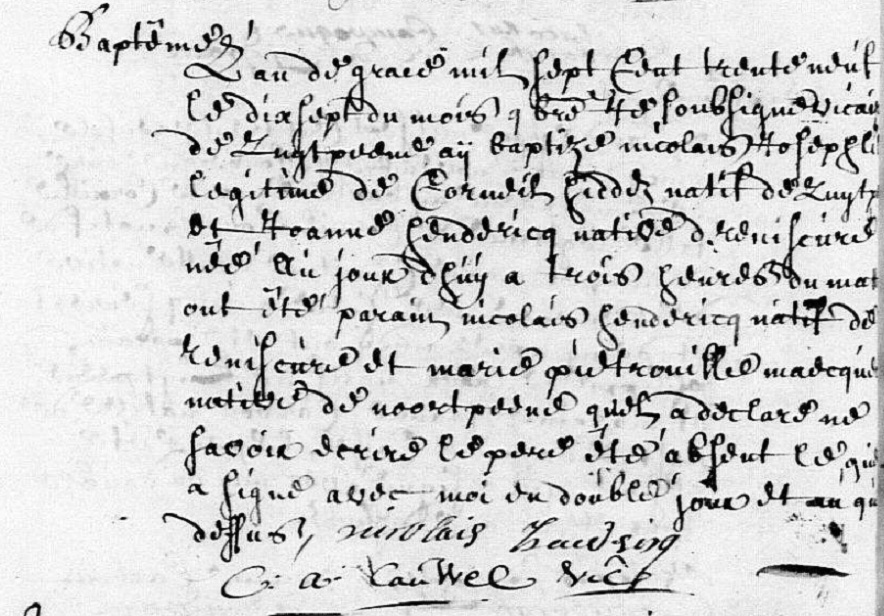 Baptême
L'an de grace mil sept cent trente neuf
le dix sept du mois 9bre Je soubsigné vicai
de Zuytpeene aÿ baptizé nicolais Joseph
legitime de Corneil hidde natif de Zuytp
et Joanne hendericq native de reniscure
née au jour d'huy a trois heures du mat
ont été parain nicolais hendericq natif de
reniscure et marie pietrouille maecque
native de noortpeene quel a declaré ne
savoir ecrire le pere été absent le que
a signé avec moi en double jour et an qu
dessus, nicolais hendricq
C. a. Cauwel vice